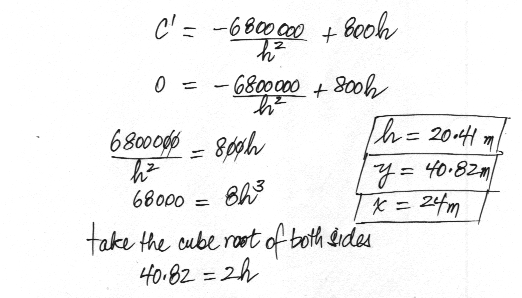 C' = -6800000/h² + 800h
0 = -6800000/h² + 800h
6800000/h² = 800h
68000 = 8h³
take the cube root of both sides
40.82 = 2h
h = 20.41 m
y = 40.82m
x = 24m